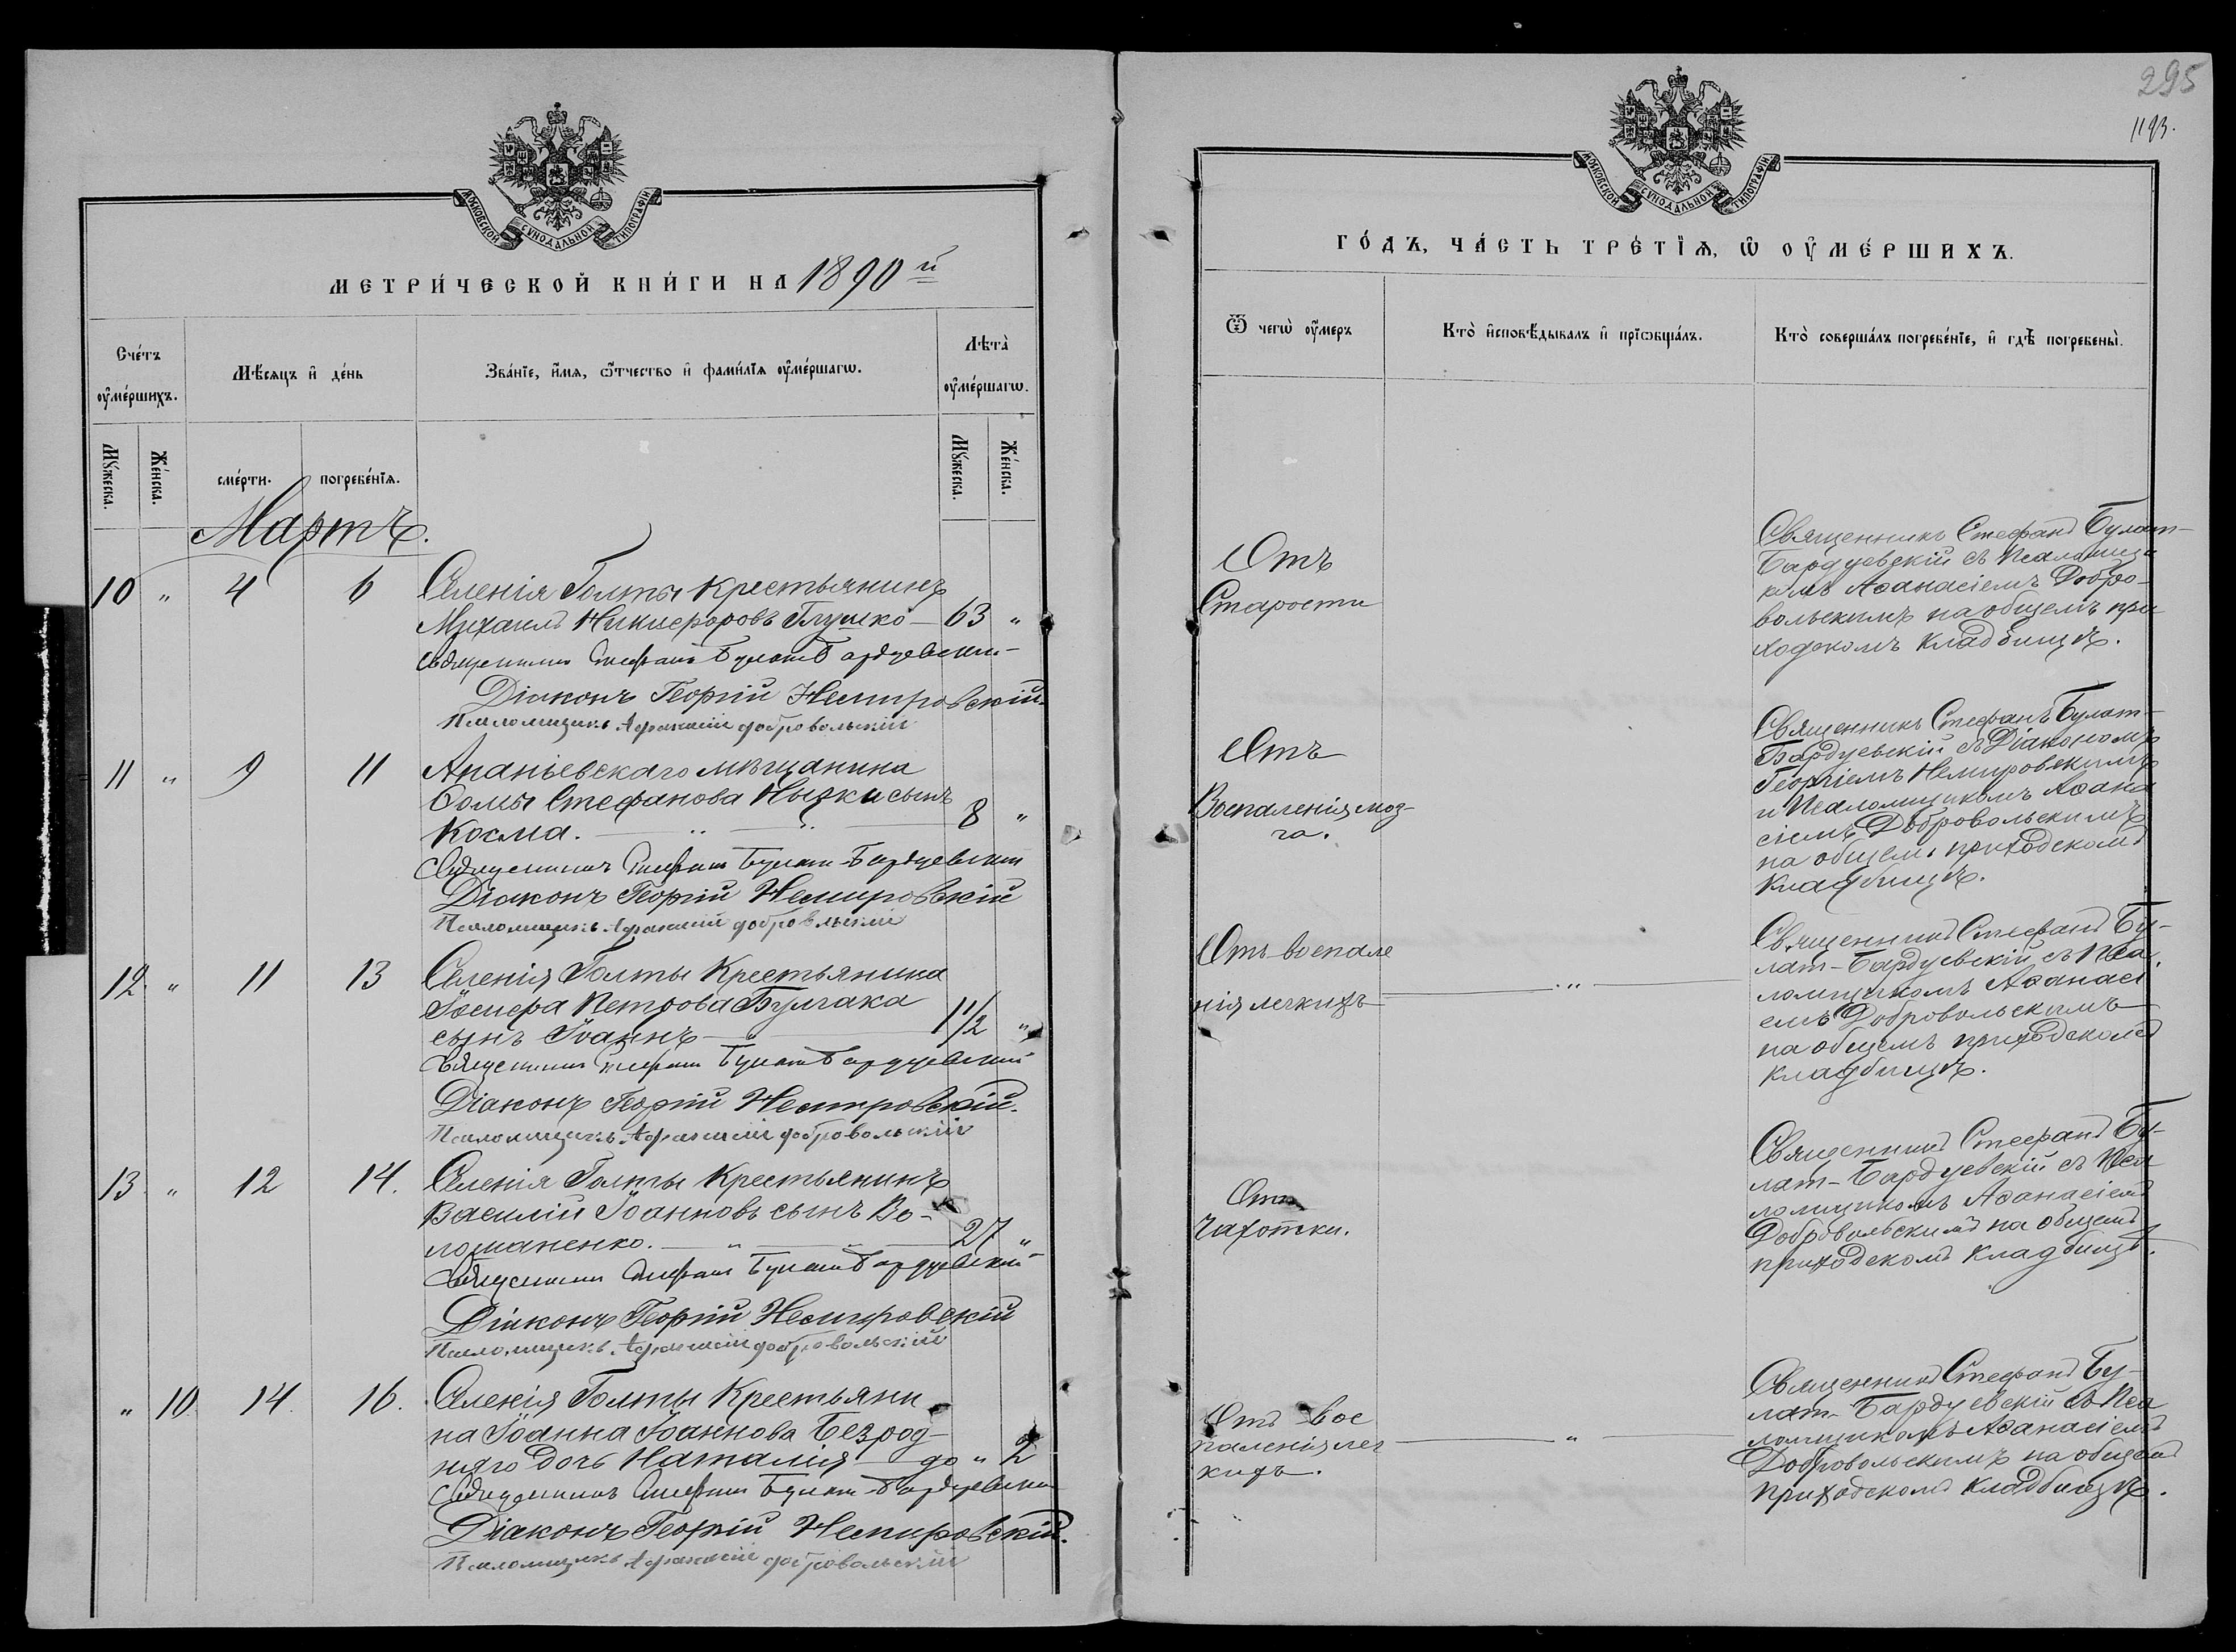 МОСКОВСКОЙ СѴНОДАЛЬНОЙ ТИПОГРАФІИ
МЕТРИ́ЧЕСКОЙ КНИ́ГИ НА 1890й
Сче́тъ ᲂу҆ме́ршихъ.
Мѣ́сѧцъ и҆ де́нь
Зва́нїе, и҆́мѧ, ѻ҆́тчество и҆ фами́лїѧ ᲂу҆ме́ршагѡ.
Лѣ́та ᲂу҆ме́ршагѡ.
Мꙋ́жеска.
Же́нска.
сме́рти.
погребе́нїѧ.
Мꙋ́жеска.
Же́нска.
Мартъ.
10 " 4 6 Селенія Голты крестьянинъ
Михаилъ Никифоровъ Глушко — 63 "
Священникъ Стефанъ Булатъ Бардуевскій
Діаконъ Георгій Немировскій.
Псаломщикъ Афанасій Добровольскій
11 " 9 11 Ананьевскаго мѣщанина
Ѳомы Стефанова сынъ
Косма. — " — " — 8 "
Священникъ Стефанъ Булатъ-Бардуевскій
Діаконъ Георгій Немировскій
Псаломщикъ Афанасій Добровольскій
12 " 11 13 Селенія Голты Крестьянина
Іосифа Петрова Булгака
сынъ Іоаннъ — 1½ "
Священникъ Стефанъ Булатъ Бардуевскій
Діаконъ Георгій Немировскій.
Псаломщикъ Афанасій Добровольскій
13 " 12 14. Селенія Голты Крестьянинъ
Василій Іоанновъ сынъ Во-
лошаненко. — " — 27 "
Священникъ Стефанъ Булатъ Бардуевскій
Діаконъ Георгій Немировскій
Псаломщикъ Афанасій Добровольскій
" 10. 14. 16. Селенія Голты Крестьяни
на Іоанна Іоаннова Безрод-
няго дочь Наталія — до " 2
Священникъ Стефанъ Булатъ-Бардуевскій
Діаконъ Георгій Немировскій.
Псаломщикъ Афанасій Добровольскій
295
1193.
МОСКОВСКОЙ СѴНОДАЛЬНОЙ ТИПОГРАФІИ
ГО́ДЪ, ЧА́СТЬ ТРЕ́ТЇѦ, Ѡ҆ ОУ҆МЕ́РШИХЪ.
Ѿ чегѡ̀ ᲂу҆́меръ
Кто̀ и҆сповѣ́дывалъ и҆ прїѡбща́лъ.
Кто̀ соверша́лъ погребе́нїе, и҆ гдѣ̀ погребены̀.
Отъ
Старости
Священникъ Стефанъ Булат-
Бардуевскій съ Псаломщи
комъ Аѳанасіемъ Добро-
вольскимъ на общемъ при
ходскомъ кладбищѣ.
Отъ
Воспаленія моз-
га.
Священникъ Стефанъ Булат-
Бардуевскій съ Діакономъ
Георгіемъ Немировскимъ
и Псаломщикомъ Аѳана
сіемъ Добровольскимъ
на общемъ приходскомъ
Кладбищѣ.
Отъ воспале
нія легкихъ — " —
Священникъ Стефанъ Бу-
лат-Бардуевскій съ Пса
ломщикомъ Аѳанасі
емъ Добровольскимъ
на общемъ приходскомъ
кладбищѣ.
Отъ
Чахотки.
Священникъ Стефанъ Бу-
лат-Бардуевскій съ Пса
ломщикомъ Аѳанасіемъ
Добровольскимъ на общемъ
приходскомъ кладбищѣ.
Отъ вос
паленія лег
кихъ. — " —
Священникъ Стефанъ Бу-
лат-Бардуевскій съ Пса
ломщикомъ Аѳанасіемъ
Добровольскимъ на общемъ
приходскомъ кладбищѣ.